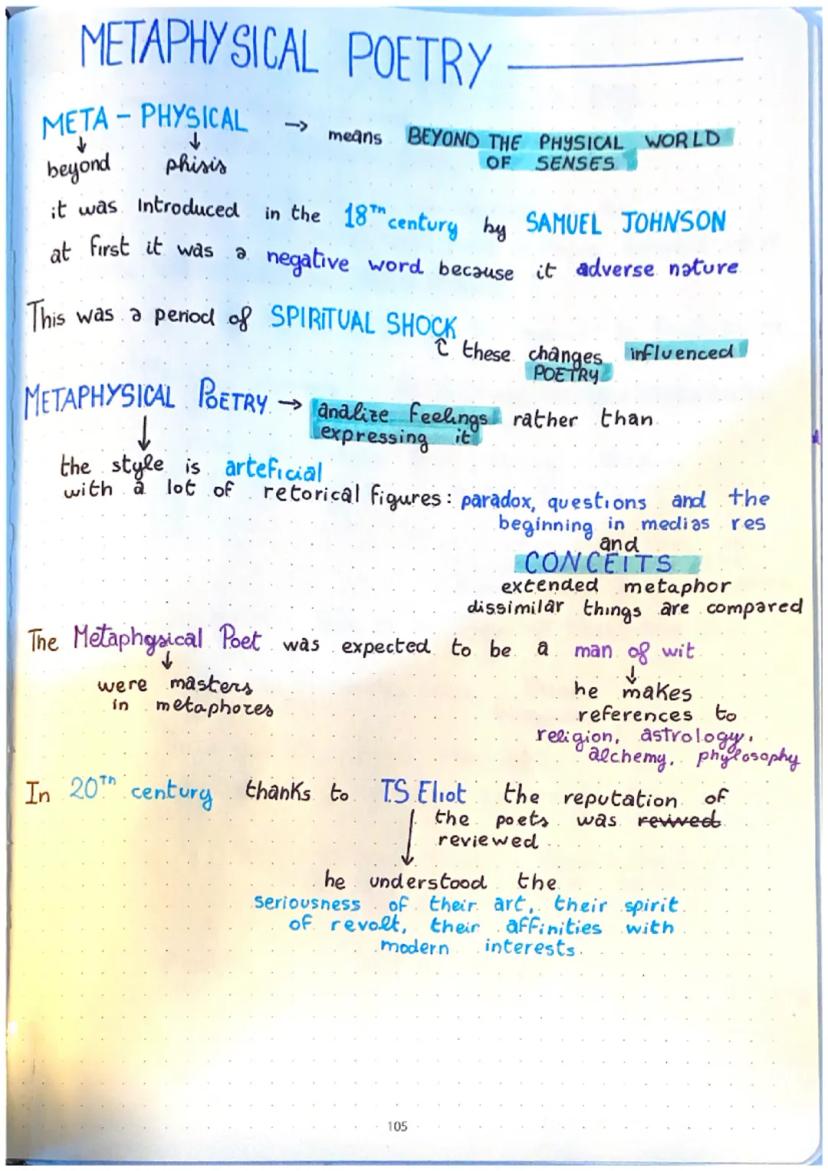 METAPHYSICAL POETRY
META - PHYSICAL → means BEYOND THE PHYSICAL WORLD
OF SENSES
beyond phisis
it was introduced in the 18th century by SAMUEL JOHNSON
at first it was a negative word because it adverse nature
This was a period of SPIRITUAL SHOCK
these changes influenced
POETRY
METAPHYSICAL POETRY → analize feelings rather than
expressing it
the style is arteficial
with a lot of retorical figures: paradox, questions and the
beginning in medias res
and
CONCEITS
extended metaphor
dissimilar things are compared
The Metaphysical Poet was expected to be a man of wit
were masters
in metaphores
he makes
references to
religion, astrology,
alchemy, phylosophy
In 20th century thanks to T.S Eliot the reputation of
the poets was revived
reviewed
he understood the
seriousness of their art, their spirit
of revolt, their affinities with
modern interests.
105